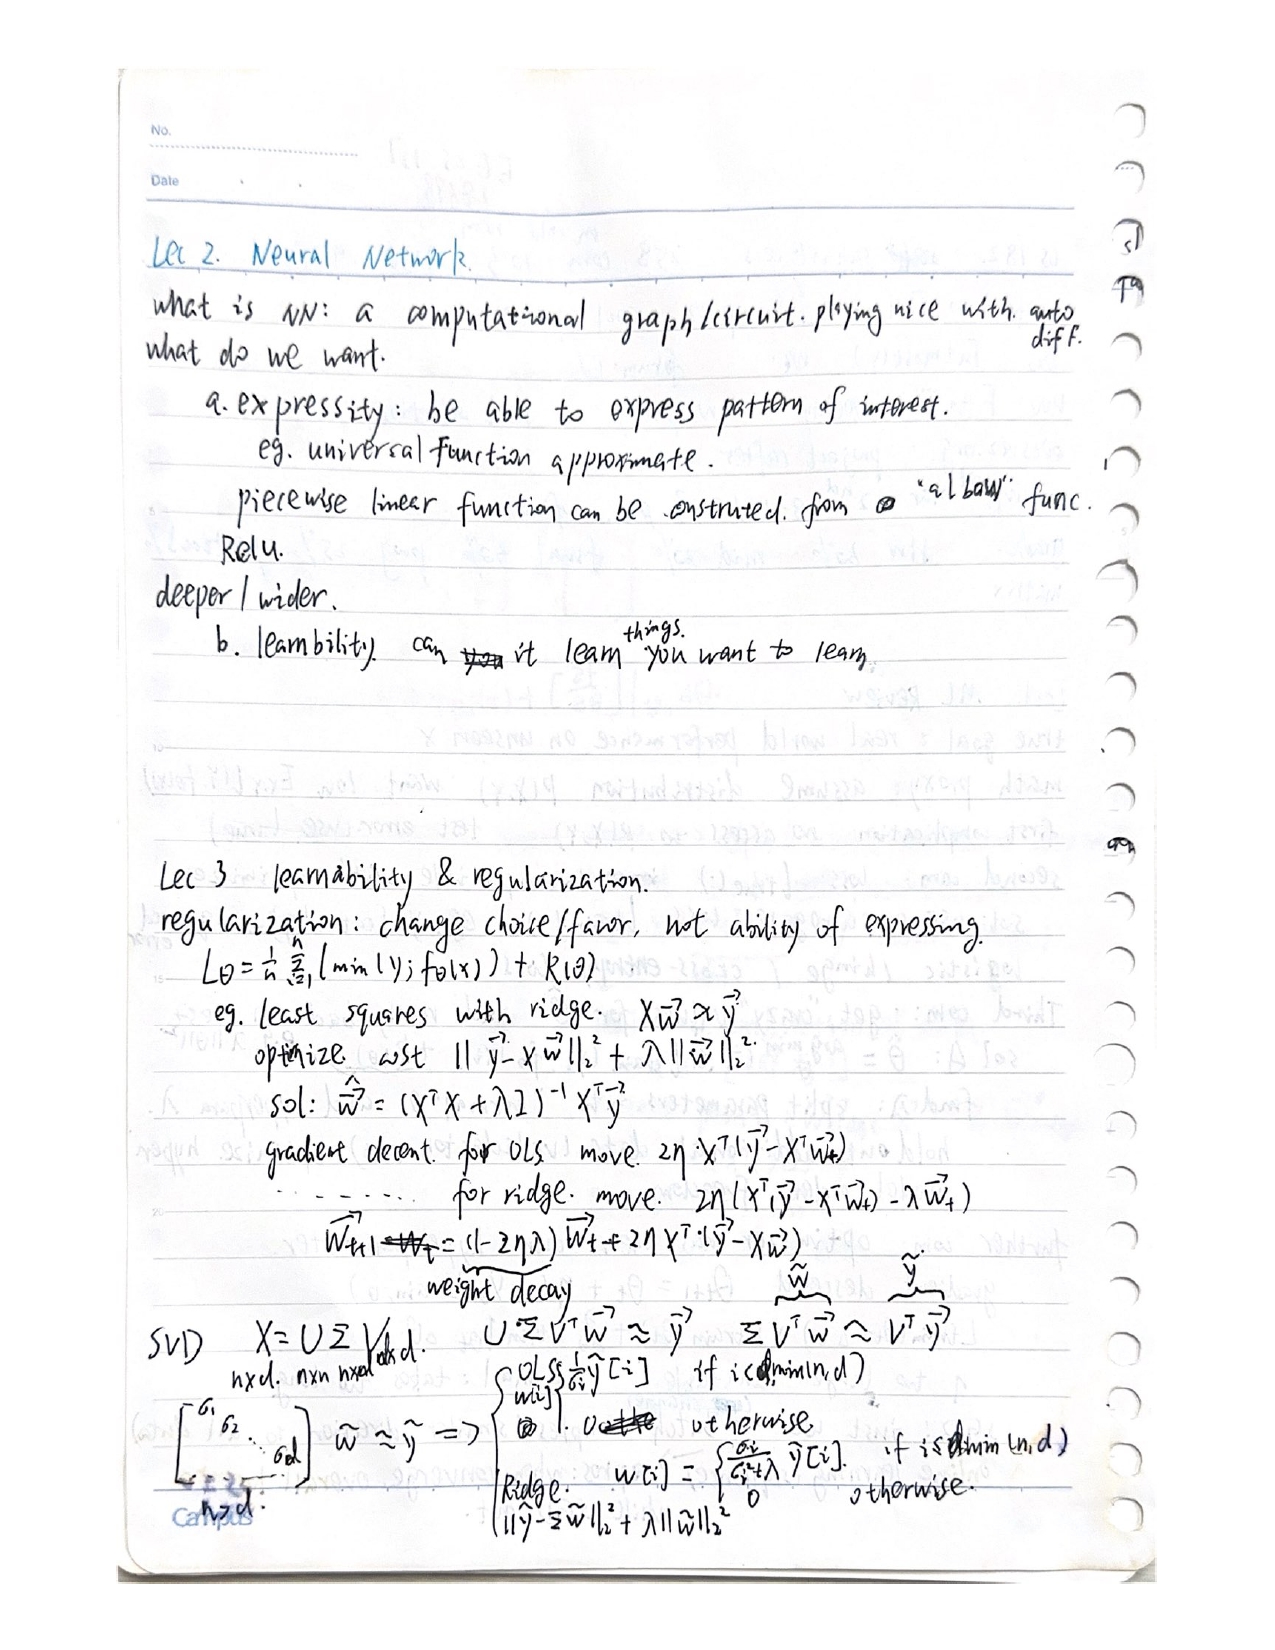 No.
Date
Lec 2. Neural Network.
what is NN: a computational graph/circuit. playing nice with. auto diff.
what do we want.
a. expressity: be able to express pattern of interest.
eg. universal function approximate.
piecewise linear function can be constructed. from "albow" func.
Relu.
deeper / wider.
b. learnbility. can it learn things. you want to learn
Lec 3 learnability & regularization.
regularization: change choice/favor, not ability of expressing.
Lθ = 1/n Σ_{i=1}^{n} (min(y; fθ(x)) + R(θ)
eg. least squares with ridge. Xw⃗ ≈ y⃗
optimize cost ||y⃗ - Xw⃗||₂² + λ||w⃗||₂².
sol: ŵ⃗ = (XᵀX + λI)⁻¹ Xᵀy⃗
gradient decent. for OLS move. 2η·Xᵀ(y⃗ - Xᵀw⃗ₜ)
-------- for ridge. move. 2η(Xᵀ(y⃗ - Xᵀw⃗ₜ) - λw⃗ₜ)
w⃗ₜ₊₁ = (1-2ηλ) w⃗ₜ + 2ηXᵀ·(y⃗ - Xw⃗)
weight decay w̃ ỹ
SVD X = UΣV UΣVᵀw⃗ ≈ y⃗ ΣVᵀw⃗ ≈ Vᵀy⃗
nxd. nxn nxd dxd.
OLS w[i] 1/σᵢ ỹ[i] if i≤min(n,d)
0 otherwise
[σ₁ σ₂ ⋱ σd] w̃ ≈ ỹ =>
n>d.
Ridge. w[i] = { σᵢ/(σᵢ²+λ) ỹ[i]. if i≤min(n,d)
0 otherwise.
||ỹ - Σw̃||₂² + λ||w̃||₂²
Campus